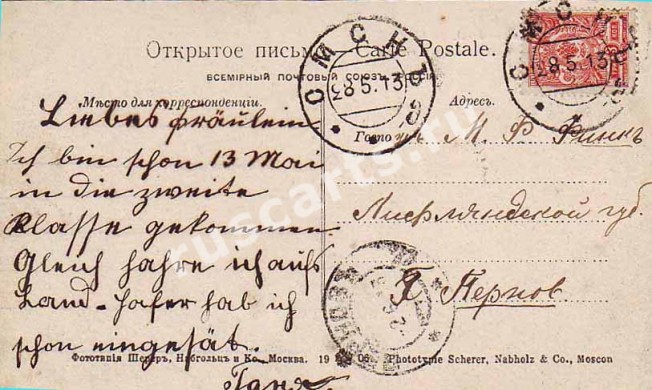 Открытое письмо — Carte Postale.
ВСЕМІРНЫЙ ПОЧТОВЫЙ СОЮЗЪ. РОССІЯ
Мѣсто для корреспонденціи.
Адресъ.
Liebes fräulein
Ich bin schon 13 Mai
in die zweite
Klasse gekommen
Gleich fahre ich aufs
Land. Hafer hab ich
schon eingesät.
Таня
М. Ф. Финкъ
Лифляндской губ.
Перновъ
ОМСКЪ
28.5.13
ОМСКЪ
28.5.13
Фототипія Шереръ, Набгольцъ и Ко. Москва. 19
Phototypie Scherer, Nabholz & Co., Moscou
ruscarts.ru